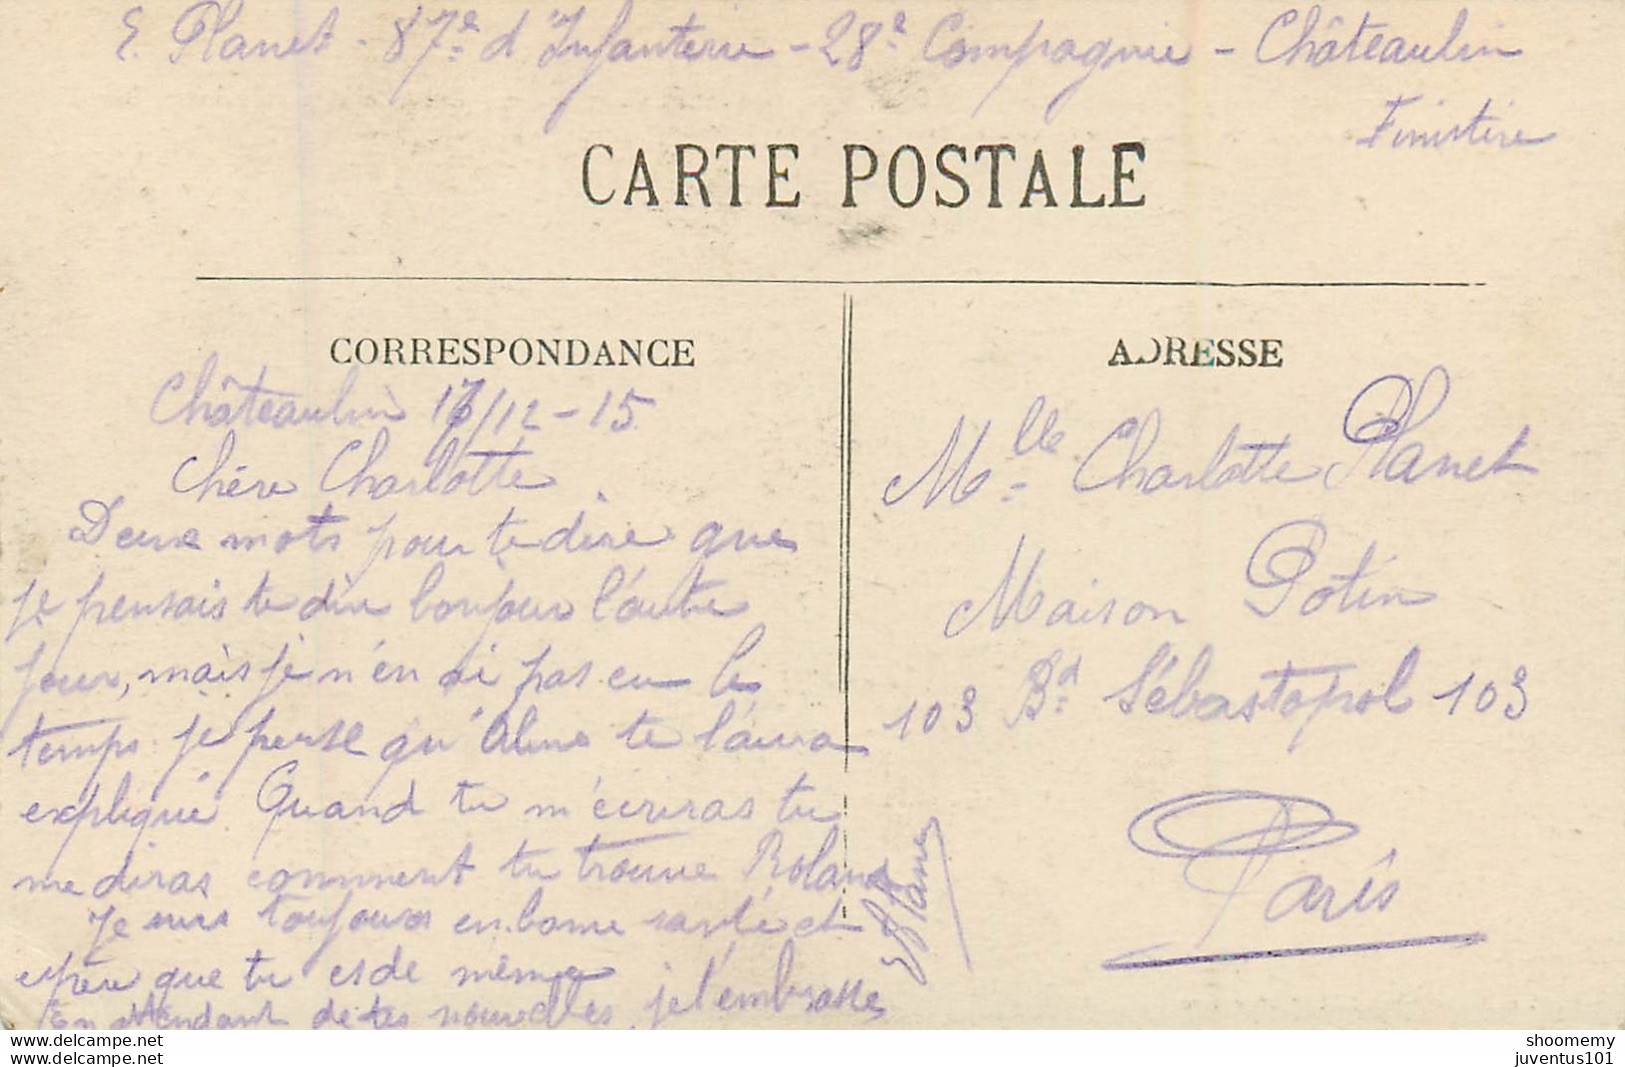 E. Planet - 87e d'Infanterie - 28e Compagnie - Châteaulin
Finistère
CARTE POSTALE
CORRESPONDANCE
Châteaulin 17/12-15
Chère Charlotte
Deux mots pour te dire que
je pensais te dire bonjour l'autre
jour, mais je n'en ai pas eu le
temps. je pense qu'Aline te l'aura
expliqué. Quand tu m'écriras tu
me diras comment tu trouve Roland
Je suis toujours en bonne santé et
espère que tu es de même
En attendant de tes nouvelles, je t'embrasse
EPlanet
ADRESSE
Mlle Charlotte Planet
Maison Potin
103 Bd Sébastopol 103
Paris
www.delcampe.net
www.delcampe.net
shoomemy
juventus101